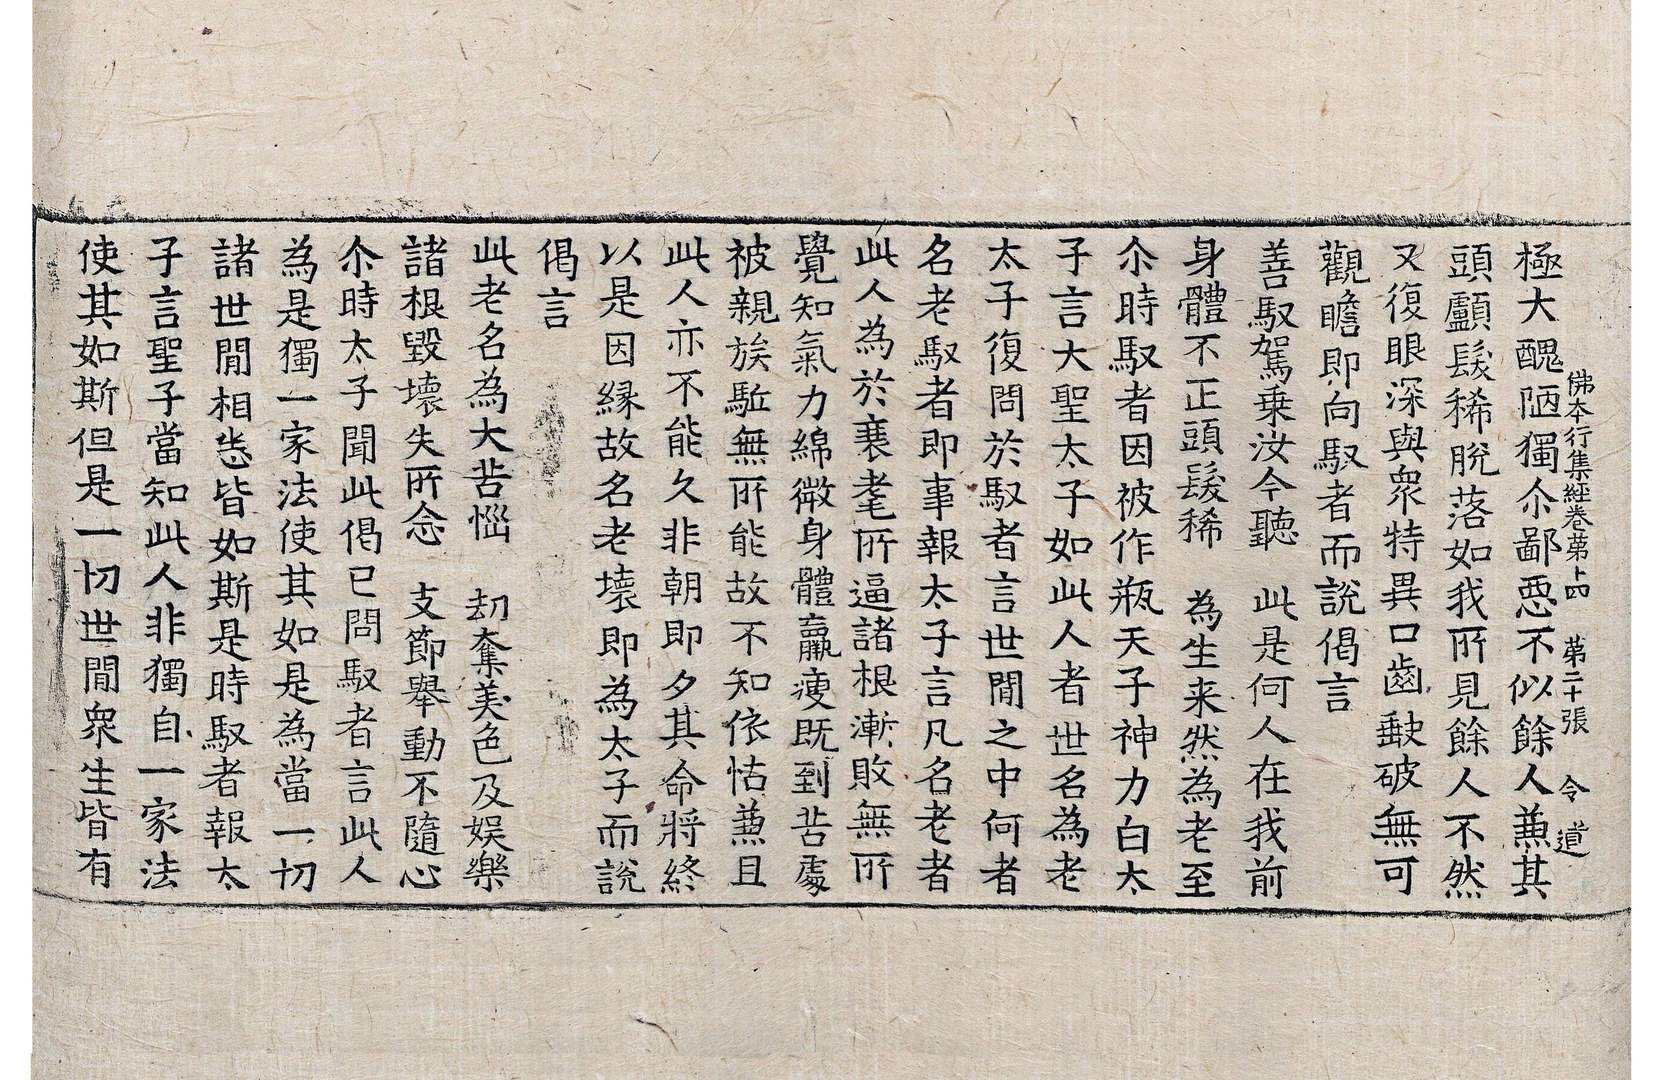 佛本行集経巻第十四 第二十張 令 道
極大醜陋獨尒鄙惡不似餘人兼其
頭顱髮稀脫落如我所見餘人不然
又復眼深與衆特異口齒缺破無可
觀瞻即向馭者而說偈言
善馭駕乗汝今聽 此是何人在我前
身體不正頭髮稀 為生来然為老至
尒時馭者因被作瓶天子神力白太
子言大聖太子如此人者世名為老
太子復問於馭者言世閒之中何者
名老馭者即事報太子言凡名老者
此人為於衰耄所逼諸根漸敗無所
覺知氣力綿微身體羸瘦既到苦處
被親族駈無所能故不知依怙兼且
此人亦不能久非朝即夕其命將終
以是因縁故名老壞即為太子而說
偈言
此老名為大苦惱 劫奪美色及娱樂
諸根毀壞失所念 支節舉動不隨心
尒時太子聞此偈已問馭者言此人
為是獨一家法使其如是為當一切
諸世閒相悉皆如斯是時馭者報太
子言聖子當知此人非獨自一家法
使其如斯但是一切世閒衆生皆有